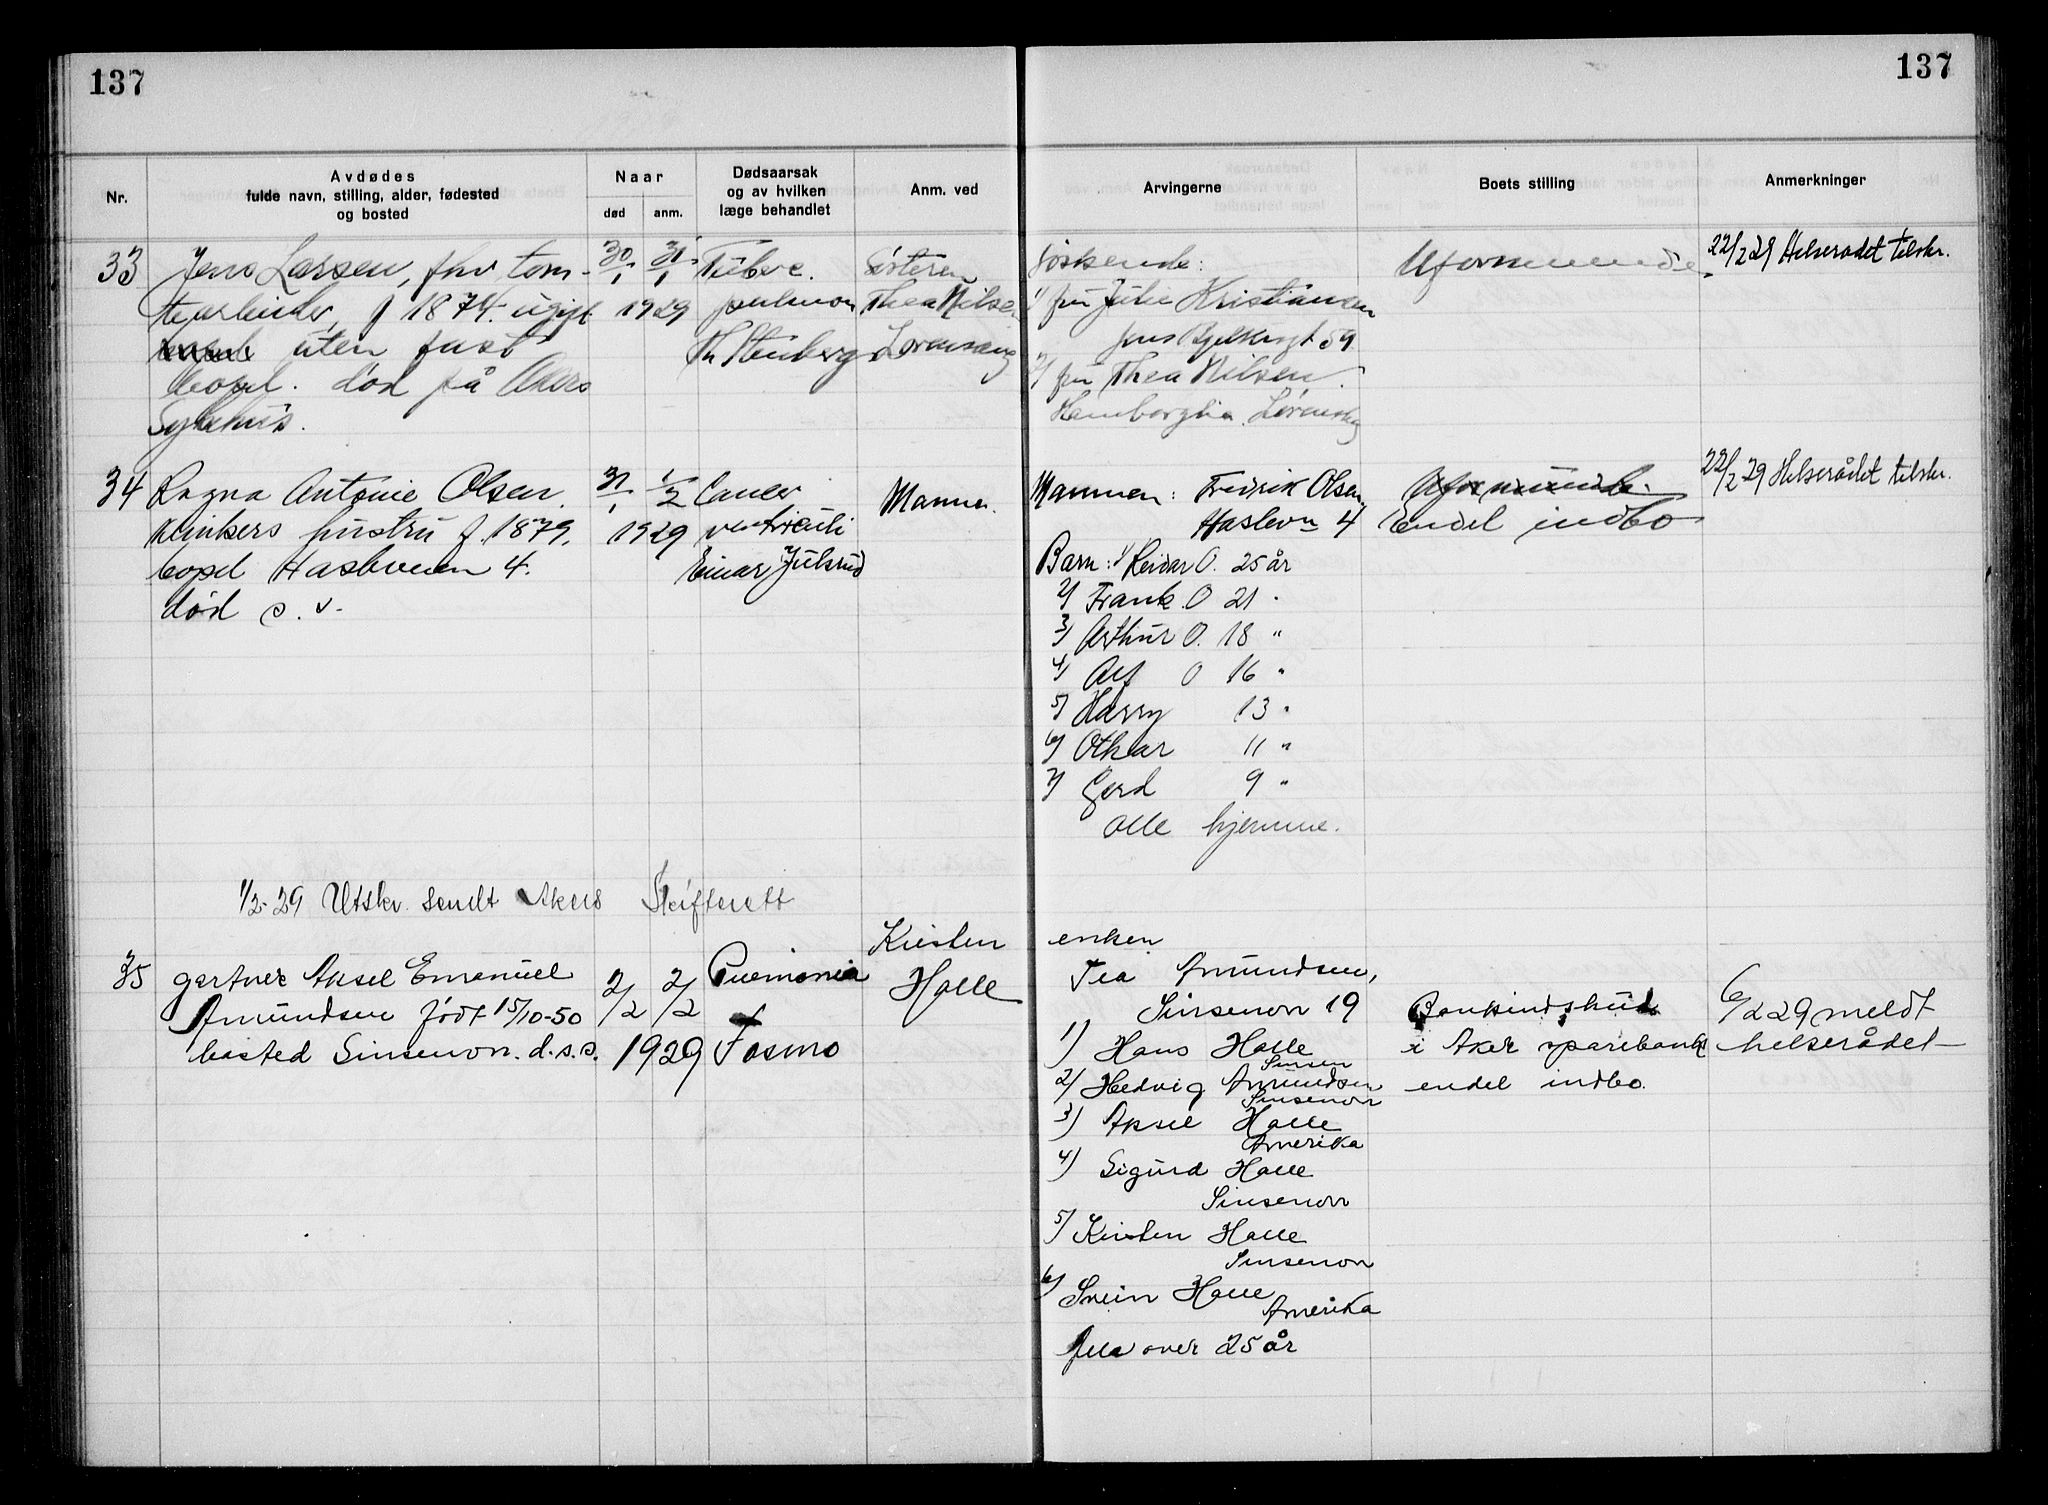 137
137
Nr.
Avdødes
fulde navn, stilling, alder, fødested
og bosted
Naar
død
anm.
Dødsaarsak
og av hvilken
læge behandlet
Anm. ved
Arvingerne
Boets stilling
Anmerkninger
33
Jens Larsen, fhv tom-
tearbeider, f 1874. ugift
uten fast
bopel. død på Akers
Sykehus.
30/1 31/1
1929
Tuberc.
pulmon
Th Stenberg
Søsteren
Thea Nilsen
Lørenskog
Søskende:
1) fru Julie Kristiansen
Jens Bjelkesgt 59
2) fru Thea Nilsen.
Lørenskog
Uformuende.
22/2 29 Helserådet tilskr.
34
Ragna Antonie Olsen.
hustru f. 1879.
bopel Hasleveien 4.
død s. v.
31/1 1/2
1929
Cancer
ventriculi
Einar Julsrud
Mannen.
Mannen: Fredrik Olsen
Haslevn 4
Barn: 1) Reidar O. 25 år
2) Frank O 21 "
3) Arthur O. 18 "
4) Alf O 16 "
5) Harry 13 "
6) Othar 11 "
7) Gerd 9 "
alle hjemme.
Uformuende.
Endel indbo
22/2 29 Helserådet tilskr.
1/2-29 Utskr. sendt Akers Skifterett
35
gartner Aksel Emanuel
Amundsen født 15/10-50
bosted Sinsenvn. d.s.s.
2/2 2/2
1929
Pneimonia
Fosmo
Kirsten
Halle
enken
Tea Amundsen,
Sinsenvn 19
1) Hans Halle
Sinsen
2) Hedvig Amundsen
Sinsenvn
3) Aksel Halle
Amerika
4) Sigurd Halle
Sinsenvn
5) Kirsten Halle
Sinsenvn
6) Svein Halle
Amerika
Alle over 25 år
Bankindskud
i Aker sparebank
endel indbo.
6/2 29 meldt
helserådet